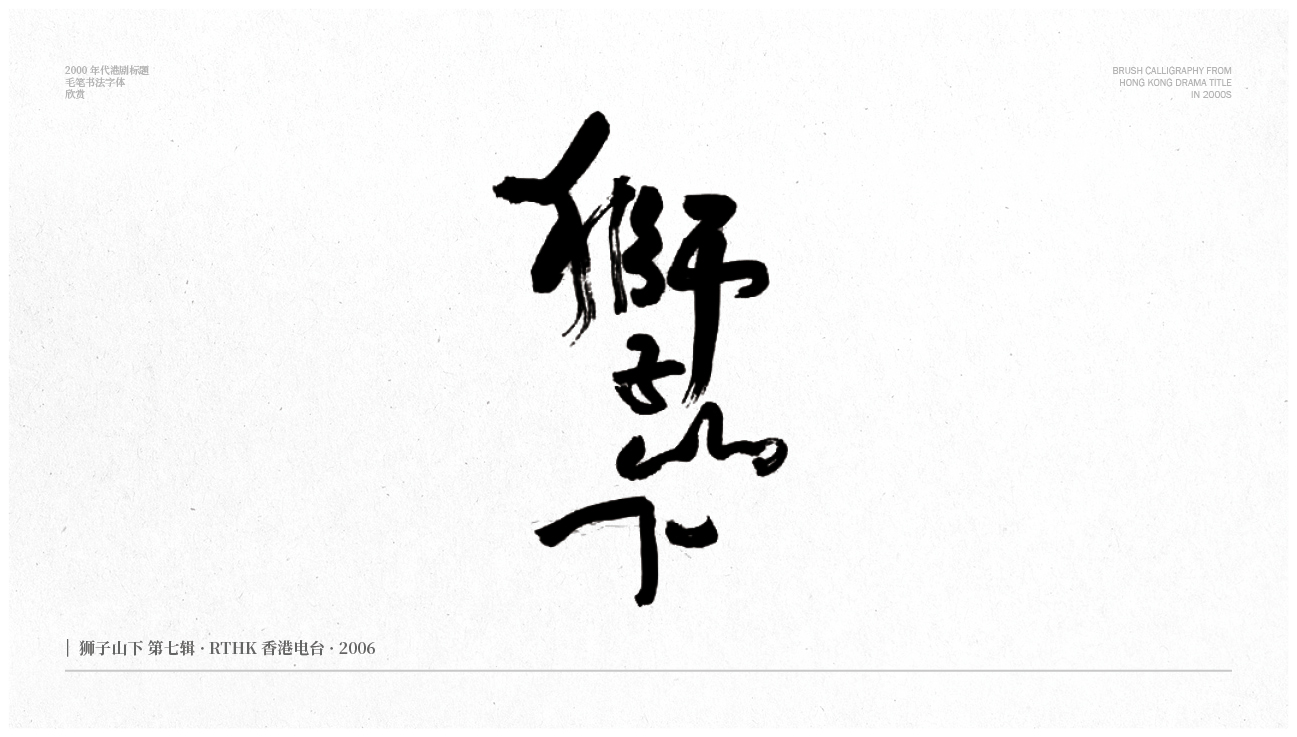 2000 年代港剧标题
毛笔书法字体
欣赏
BRUSH CALLIGRAPHY FROM
HONG KONG DRAMA TITLE
IN 2000S
獅
子
山
下
狮子山下 第七辑 · RTHK 香港电台 · 2006